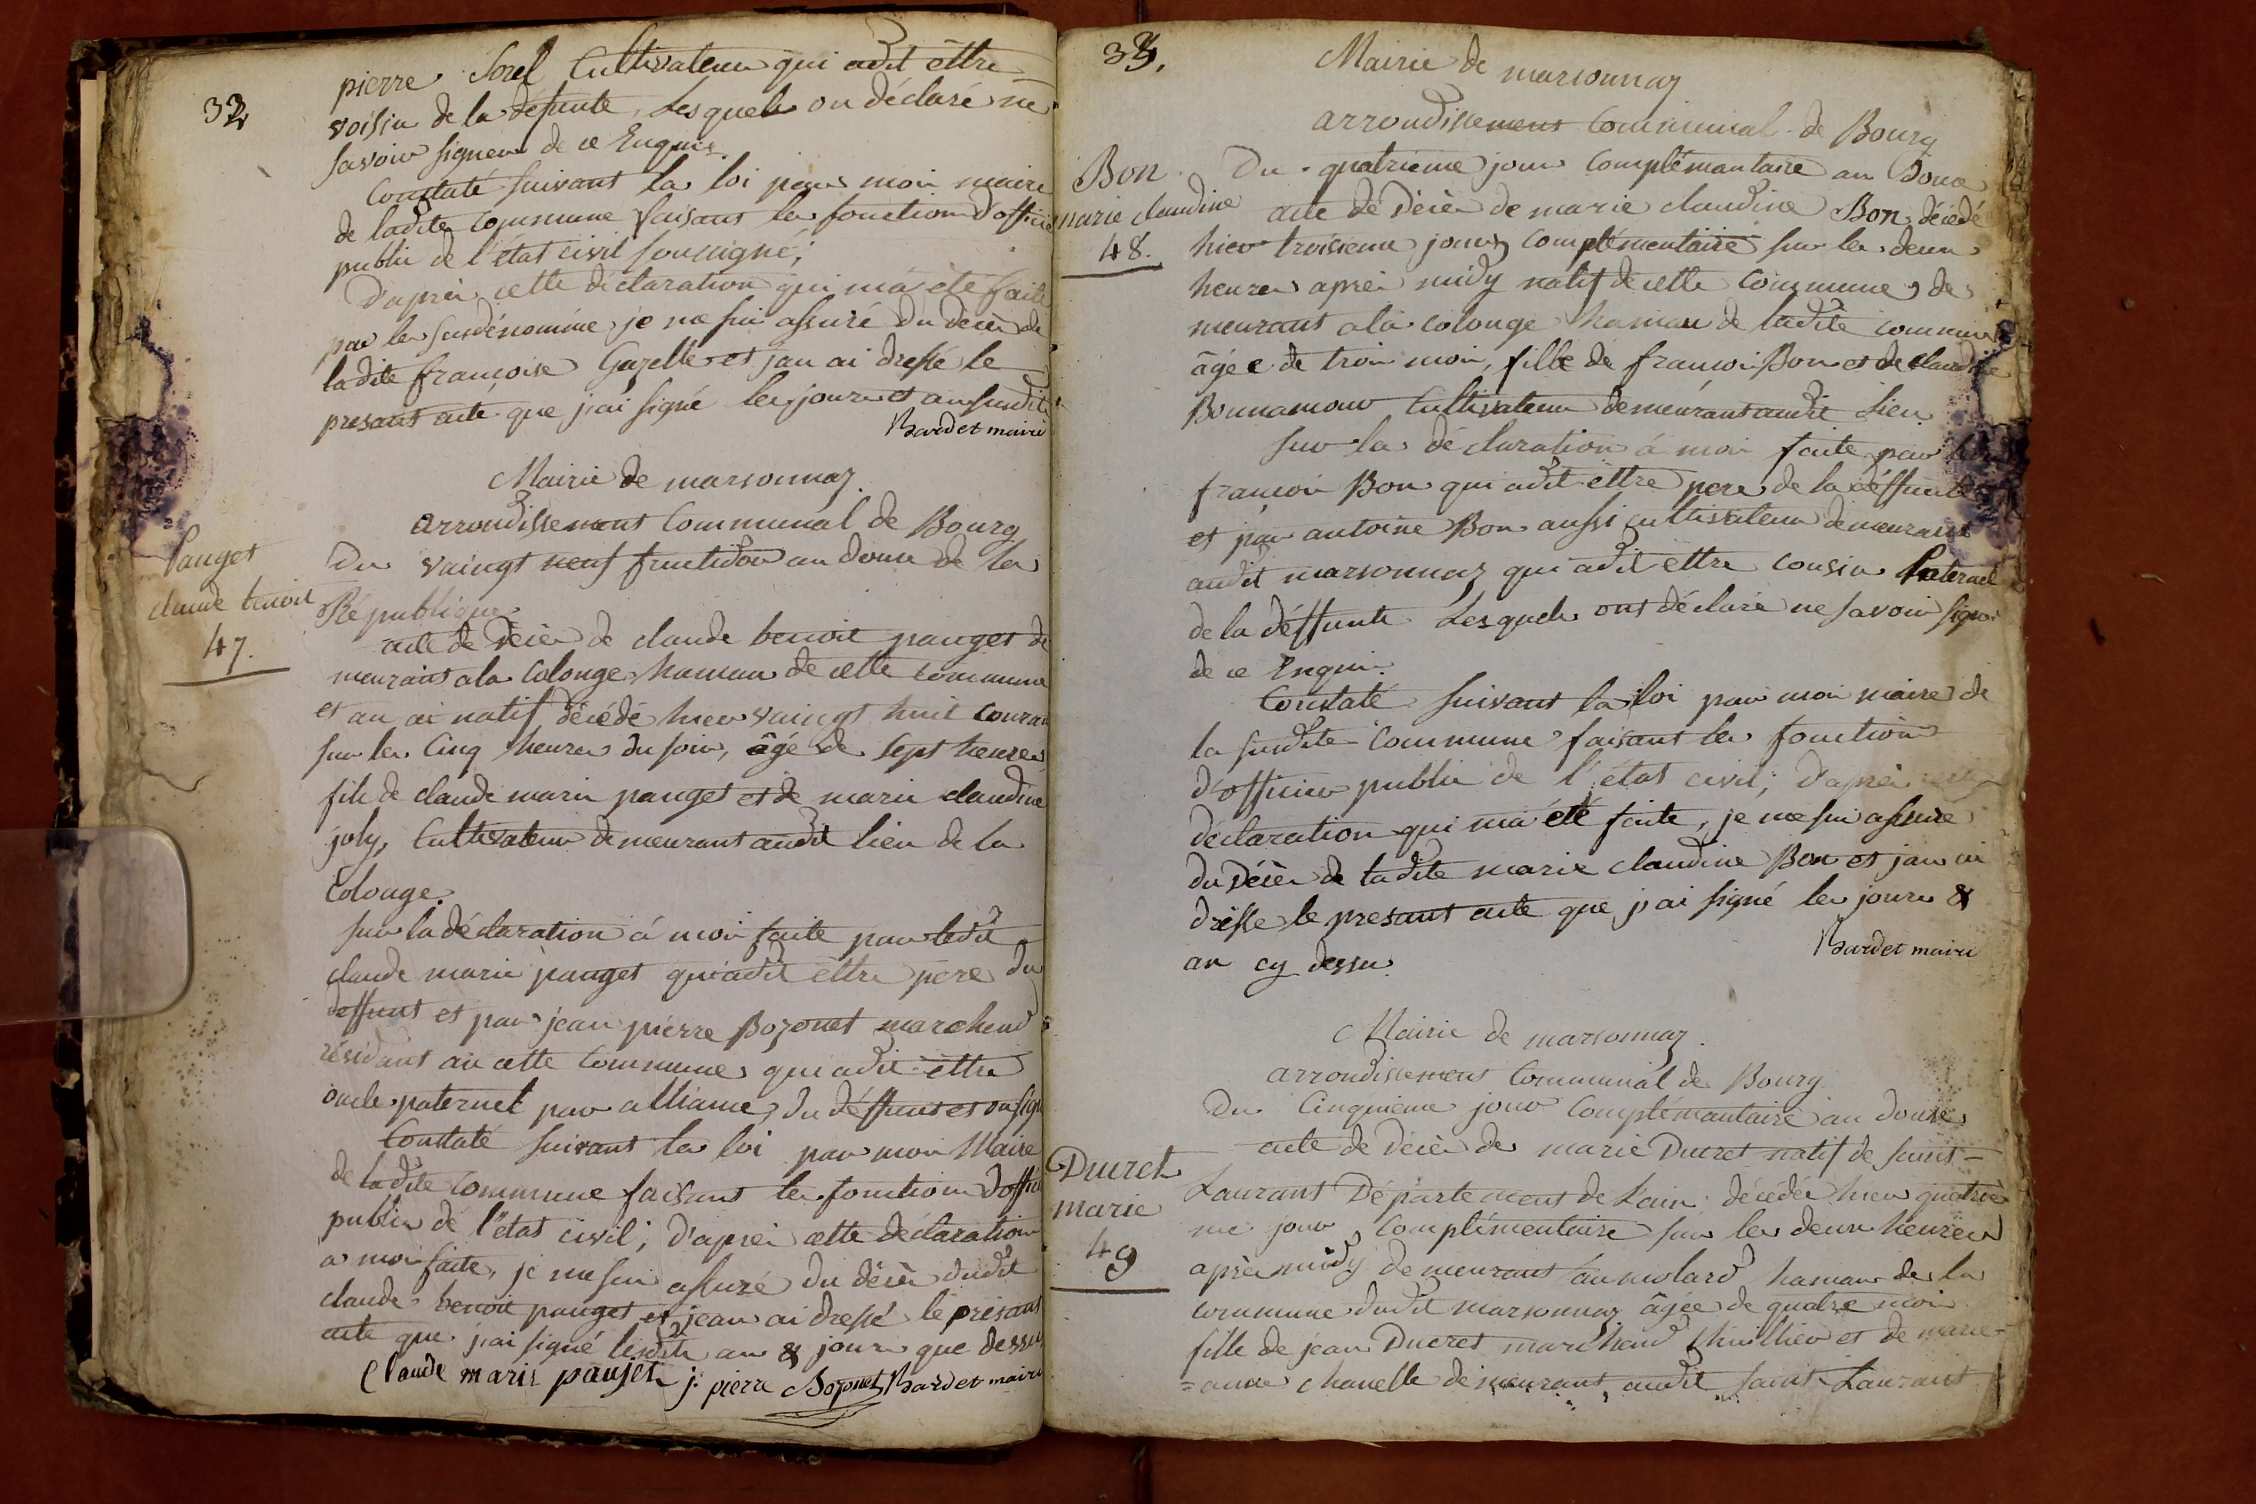 32
pierre Sorel Cultivateur qui adit êttre
voisin de la défunte, Lesquels on déclaré ne
savoir signer de ce Enquis.
Constaté suivant la loi par moi maire
de ladite commune faisant les fonction d'officier
public de l'état civil soussigné;
D'aprèi cette déclaration qui má été faite
par les susdénomine, je me sui assuré du decès de
ladite francoise Gazelle et jan ai dressé le
presant acte que j'ai signé les jour et an susdit
Bardet maire
Mairie de marsonnaz.
arrondissement Communal de Bourg
Pauget
claude benoit
47.
Du vaingt neuf fructidor an douze de la
République
acte de décès de claude benoit pauget de
meurant a la Colonge hameau de cette commune
et an ai natif, décédé hier vaingt huit couran
sur les Cinq heures du soir, âgé de sept heures
fils de claude marie pauget et de marie claudine
joly, Cultivateur demeurant audit lieu de la
Colonge.
sur la déclaration á moi faite par ledit
claude marie pauget qui adit êttre pere du
deffunt et par jean pierre Bozonet marchend
résidant an cette Commune, qui adit êttre
oncle paternel par alliance, du déffunt et on sign
Constaté suivant la loi par moi Maire
de ladite Commune faisant les fonction d'offici
public de l'état civil; D'aprèi cette déclaration
a moi faite, je me sui assuré du décès dudit
claude benoit pauget et jean ai dressé le présant
acte que j'ai signé lesdits an & jour que dessus
Claude marie paujet j: pierre Bozonet Bardet maire
33,
Mairie de marsonnaz
arrondissement Communal de Bourg
Bon
marie claudine
48.
Du quatrieme jour Complémantaire an Douze
acte de décès de marie claudine Bon, décédé
hier troisieme jour complémentaire sur les deux
heures aprèi midy natif de cette commune, de
meurant a la colonge hamau de ladite commune
âgée de troi moi, fille de francoi Bon et de claudine
Bonnamour Cultivateur demeurant audit Lieu
sur la déclaration á moi faite par
françoi Bon qui adit êttre pere de la déffunte
et par antoine Bon aussi cultivateur demeurant
audit marsonnaz qui adit êttre cousin Paternel
de la déffunte Lesquels ont déclaré ne savoir signer
de ce Enqui.
Constaté suivant la loi par moi maire de
la susdite Commune faisant les fonction
d'officier public de l'état civil; d'aprèi
déclaration qui má été faite, je me sui assuré
du décès de ladite marie claudine Bon et jan ai
dressé le presant acte que j'ai signé les jour &
an cy dessu.
Bardet maire
Mairie de marsonnaz.
arrondissement Communal de Bourg
Du Cinquième jour Complémantaire an douze
Ducret
marie
49
acte de décès de marie Ducret natif de saint-
Laurant Département de Lain; décédée hier quatriè
me jour Complémentaire sur les deux heures
aprèi midy demeurant au molard hamau de la
commune dudit marsonnaz âgée de quatre moi
fille de jean Ducret marchend Chuillier et de marie-
=anne chanelle demeurant audit saint-Laurant